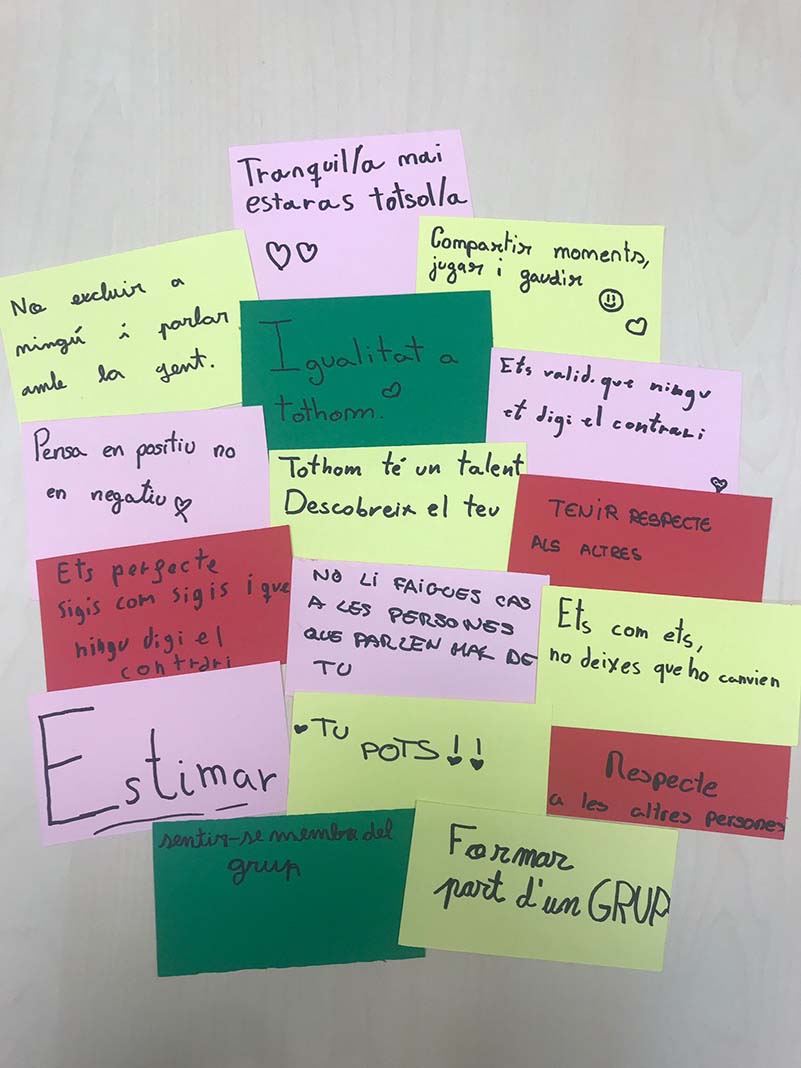 Tranquil/a mai
estaras totsol/a
Compartir moments,
jugar i gaudir
No excluir a
ningú i parlar
amb la gent.
Igualitat a
tothom.
Ets valid. que ningu
et digi el contrari
Pensa en positiu no
en negatiu
Tothom té un talent
Descobreix el teu
TENIR RESPECTE
ALS ALTRES
Ets perfecte
sigis com sigis i que
ningu digi el
contrari
NO LI FAIGUES CAS
A LES PERSONES
QUE PARLEN MAL DE
TU
Ets com ets,
no deixes que ho canvien
Estimar
TU
POTS!!
Respecte
a les altres persones
sentir-se membre del
grup
Formar
part d'un GRUP